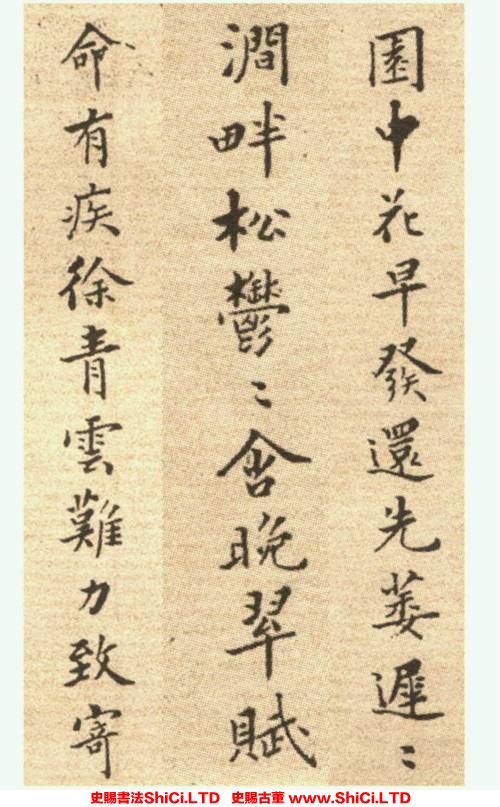 園中花早發還先萎遲〻
澗畔松鬱〻含晚翠賦
命有疾徐青雲難力致寄
史賜書法ShiCi.LTD 史賜古董 www.ShiCi.LTD